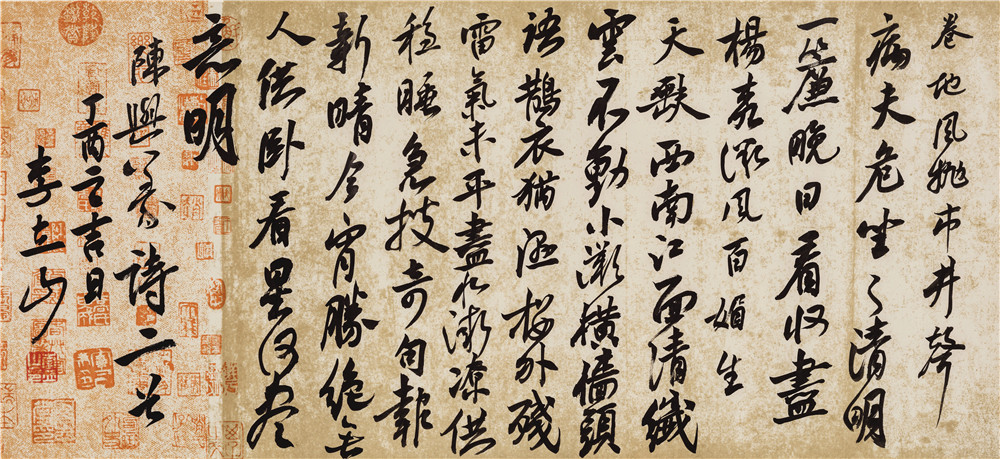 卷地風抛市井聲
病夫危坐了清明
一簾晚日看收盡
楊柳微風百媚生
天缺西南江面清纖
雲不動小灘横墻頭
語鵲衣猶濕樓外殘
雷氣未平盡取微涼供
穩睡急搜奇句報
新晴今宵勝絕無
人供卧看星河尽
意明
陳與義詩二首
丁酉之吉日
李立山